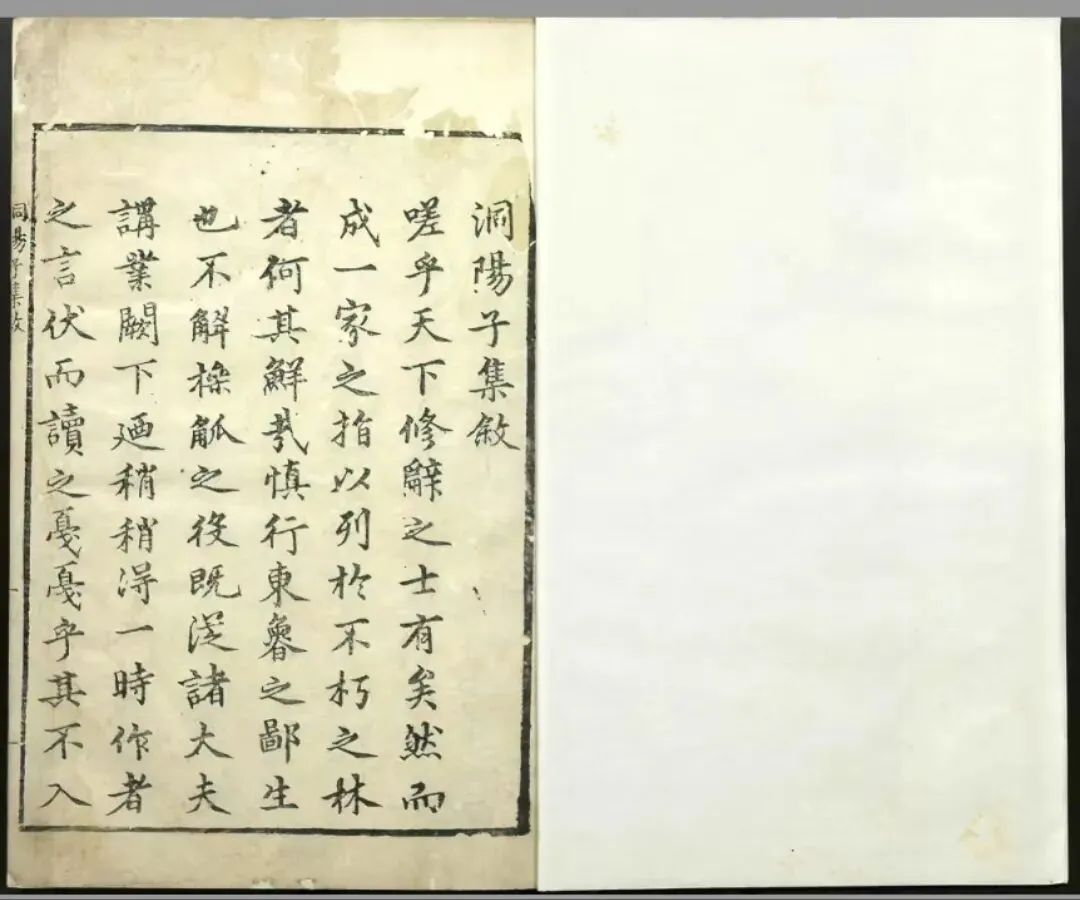 洞陽子集敘
嗟乎天下修辭之士有矣然而
成一家之指以列於不朽之林
者何其鮮哉慎行東魯之鄙生
也不解操觚之役既從諸大夫
講業闕下廼稍稍得一時作者
之言伏而讀之戞戞乎其不入
洞陽子集敘